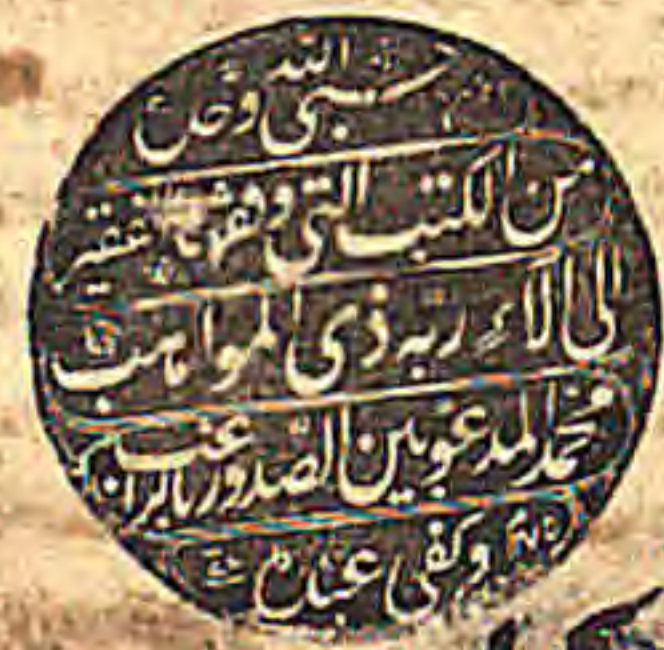 حسبى الله وحده
من الكتب التى وقفها الفقير
الى الاء ربه ذى المواهب
محمد المدعو بين الصدور بالراغب
وكفى عبده